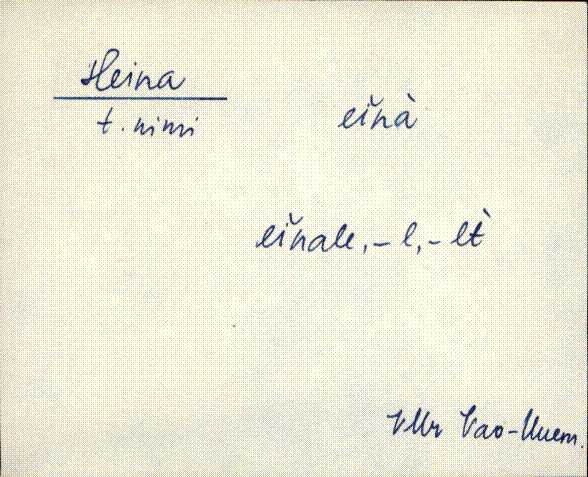 Heina
t. nimi
eǐnà
eǐnale, - l, - lt̀
VMr Vao-Uuem.